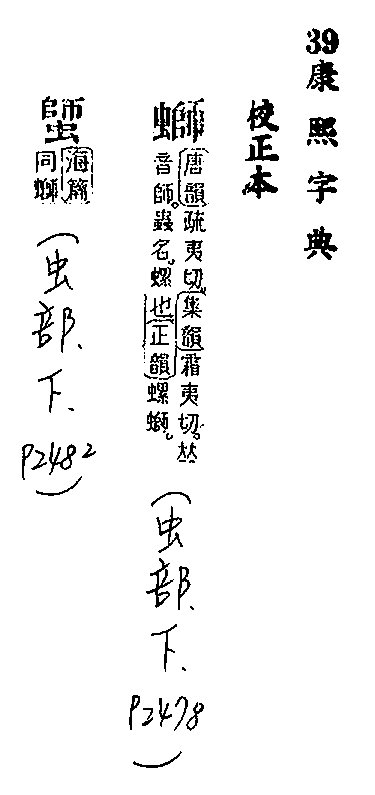 39康熙字典
校正本
螄
唐韻疏夷切集韻霜夷切𠀤
音師。蟲名。螺也正韻螺螄。
(虫部.下.P2478)
𧎖
海篇
同螄
(虫部.下.P2482)